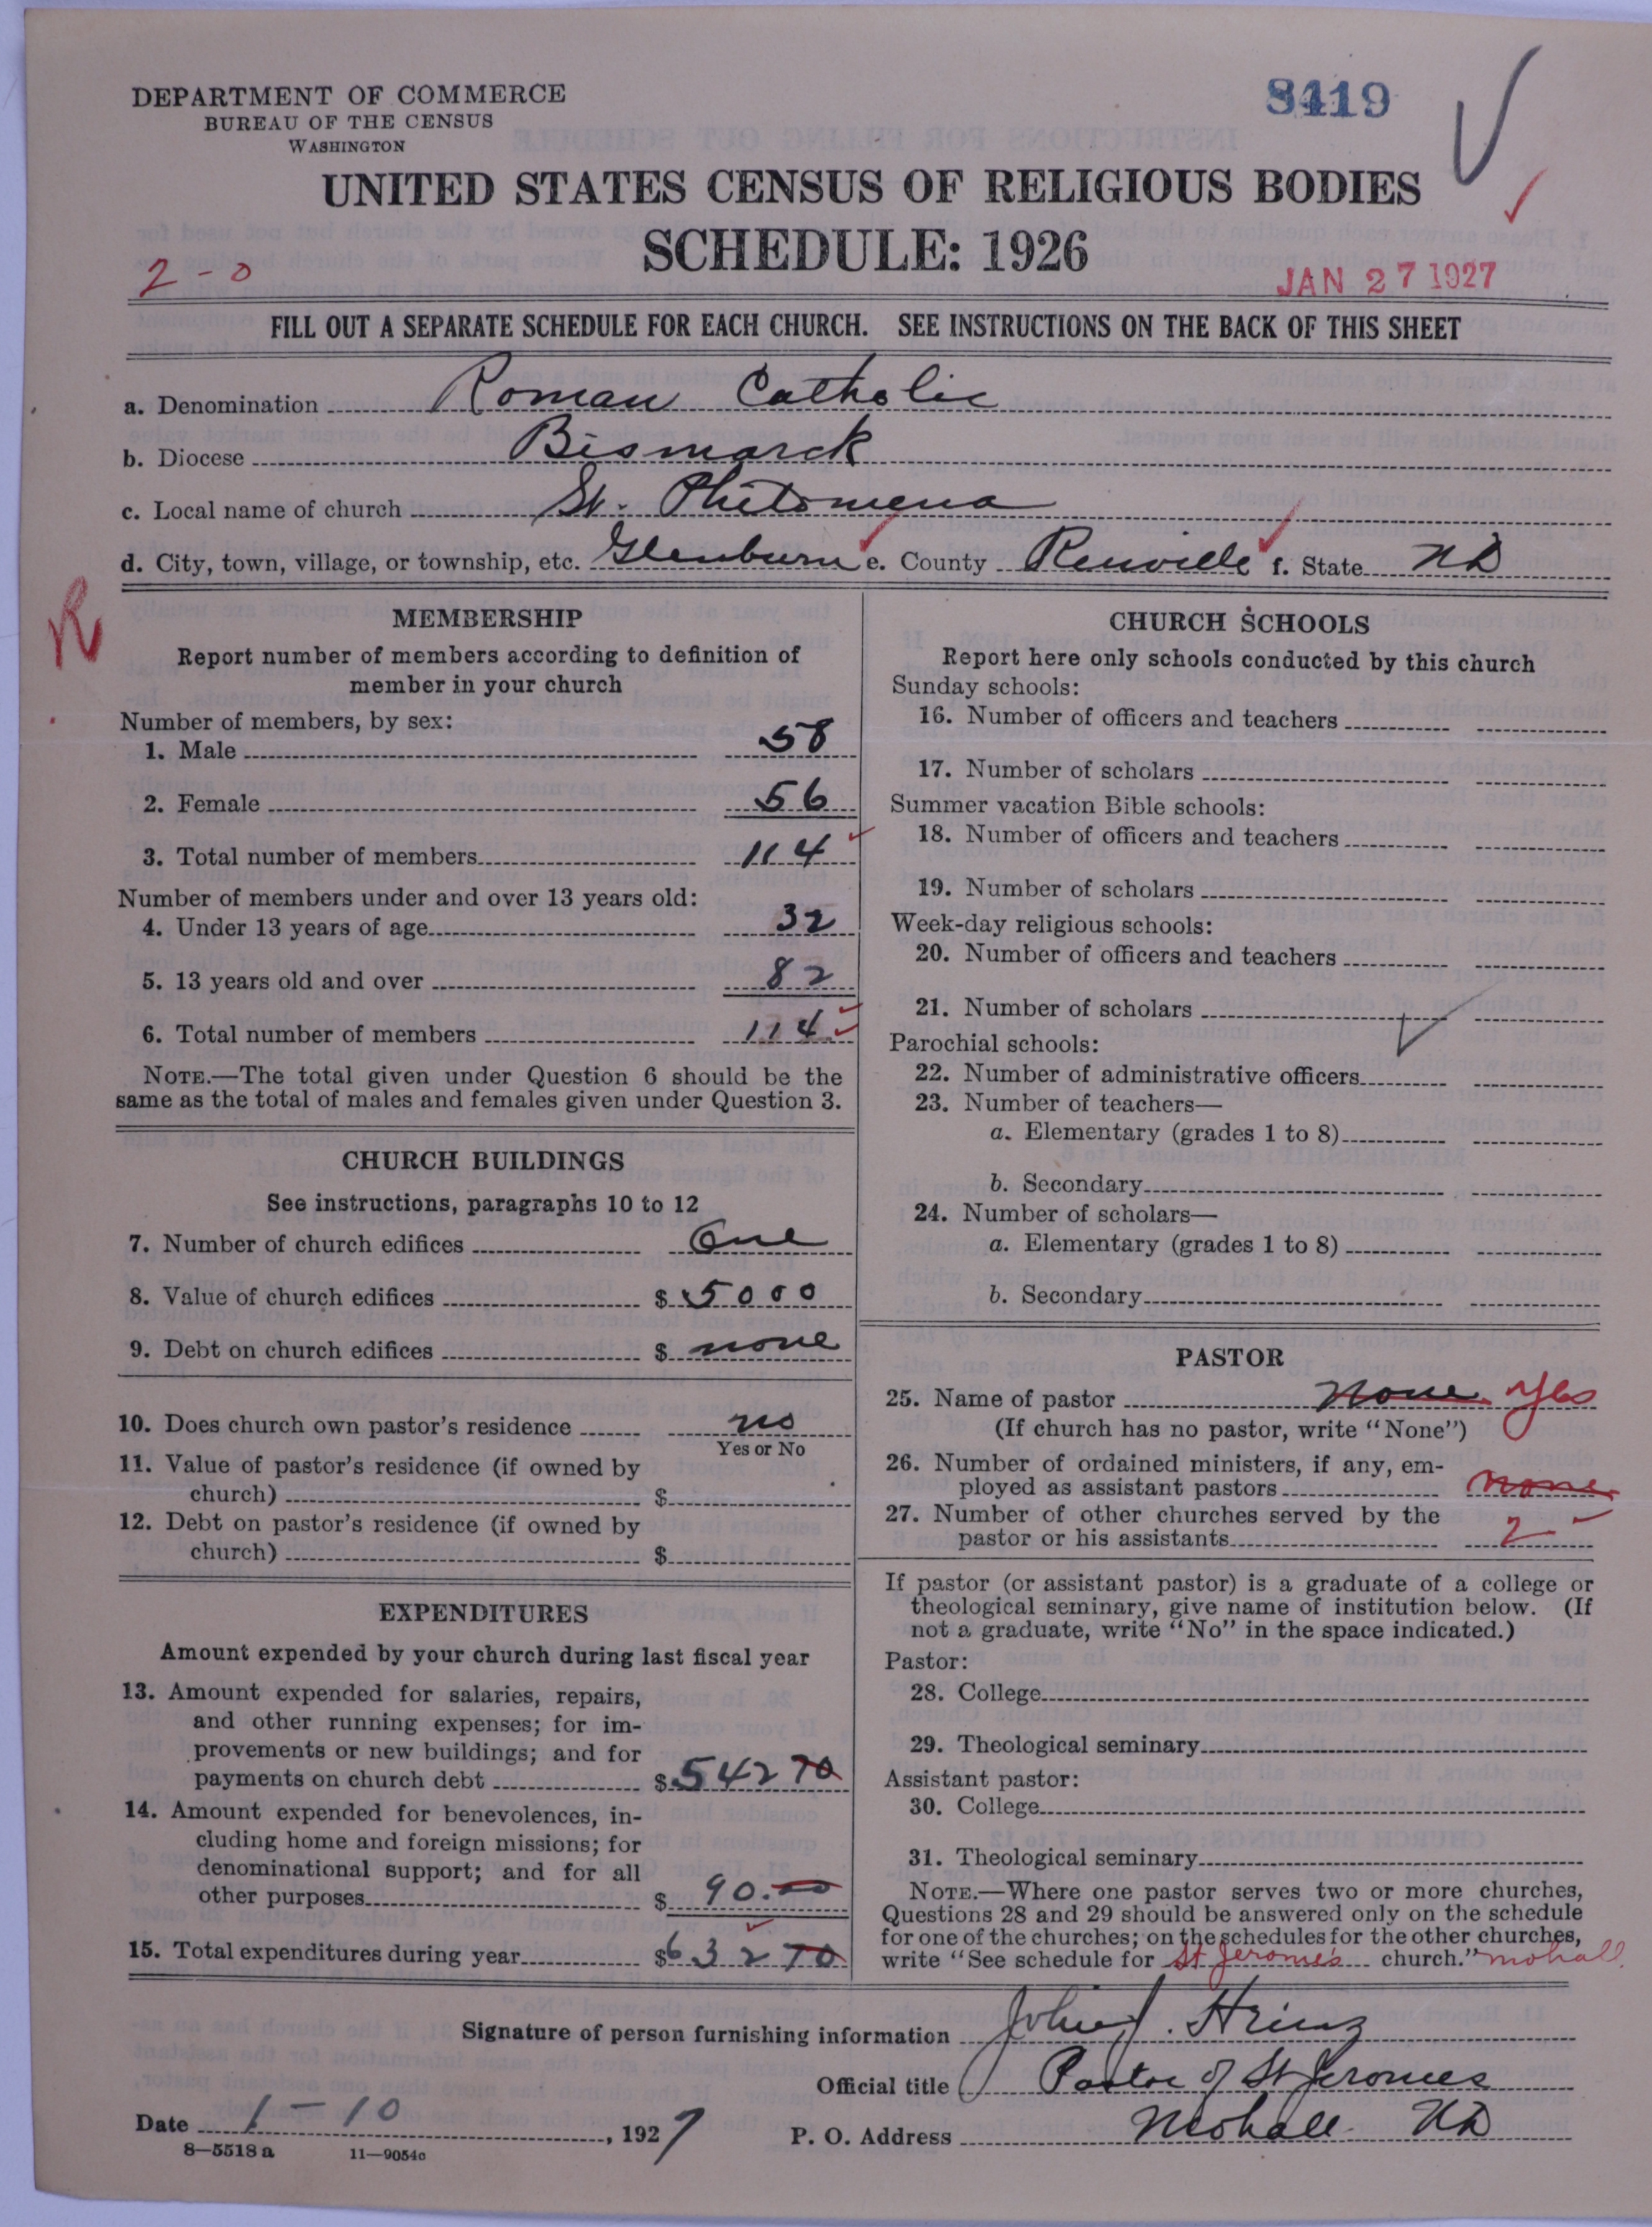 DEPARTMENT OF COMMERCE
BUREAU OF THE CENSUS
WASHINGTON
8419
UNITED STATES CENSUS OF RELIGIOUS BODIES
SCHEDULE: 1926
2 - 0
JAN 27 1927
FILL OUT A SEPARATE SCHEDULE FOR EACH CHURCH. SEE INSTRUCTIONS ON THE BACK OF THIS SHEET
a. Denomination Roman Catholic
b. Diocese Bismarck
c. Local name of church St. Philomena
d. City, town, village, or township, etc. Glenburn e. County Renville f. State ND
R
MEMBERSHIP
Report number of members according to definition of
member in your church
Number of members, by sex:
1. Male 58
2. Female 56
3. Total number of members 114
Number of members under and over 13 years old:
4. Under 13 years of age 32
5. 13 years old and over 82
6. Total number of members 114
NOTE.—The total given under Question 6 should be the
same as the total of males and females given under Question 3.
CHURCH BUILDINGS
See instructions, paragraphs 10 to 12
7. Number of church edifices One
8. Value of church edifices $ 5000
9. Debt on church edifices $ none
10. Does church own pastor's residence no
Yes or No
11. Value of pastor's residence (if owned by
church) $
12. Debt on pastor's residence (if owned by
church) $
EXPENDITURES
Amount expended by your church during last fiscal year
13. Amount expended for salaries, repairs,
and other running expenses; for im-
provements or new buildings; and for
payments on church debt $ 542 70
14. Amount expended for benevolences, in-
cluding home and foreign missions; for
denominational support; and for all
other purposes $ 90.00
15. Total expenditures during year $ 632 70
CHURCH SCHOOLS
Report here only schools conducted by this church
Sunday schools:
16. Number of officers and teachers
17. Number of scholars
Summer vacation Bible schools:
18. Number of officers and teachers
19. Number of scholars
Week-day religious schools:
20. Number of officers and teachers
21. Number of scholars
Parochial schools:
22. Number of administrative officers
23. Number of teachers—
a. Elementary (grades 1 to 8)
b. Secondary
24. Number of scholars—
a. Elementary (grades 1 to 8)
b. Secondary
PASTOR
25. Name of pastor None Yes
(If church has no pastor, write "None")
26. Number of ordained ministers, if any, em-
ployed as assistant pastors none
27. Number of other churches served by the
pastor or his assistants 2
If pastor (or assistant pastor) is a graduate of a college or
theological seminary, give name of institution below. (If
not a graduate, write "No" in the space indicated.)
Pastor:
28. College
29. Theological seminary
Assistant pastor:
30. College
31. Theological seminary
NOTE.—Where one pastor serves two or more churches,
Questions 28 and 29 should be answered only on the schedule
for one of the churches; on the schedules for the other churches,
write "See schedule for St Jerome's church." Mohall
Signature of person furnishing information John J. Hrinz
Official title Pastor of St Jeromes
Date 1 - 10, 1927
P. O. Address Mohall ND
8—5518 a 11—9054c